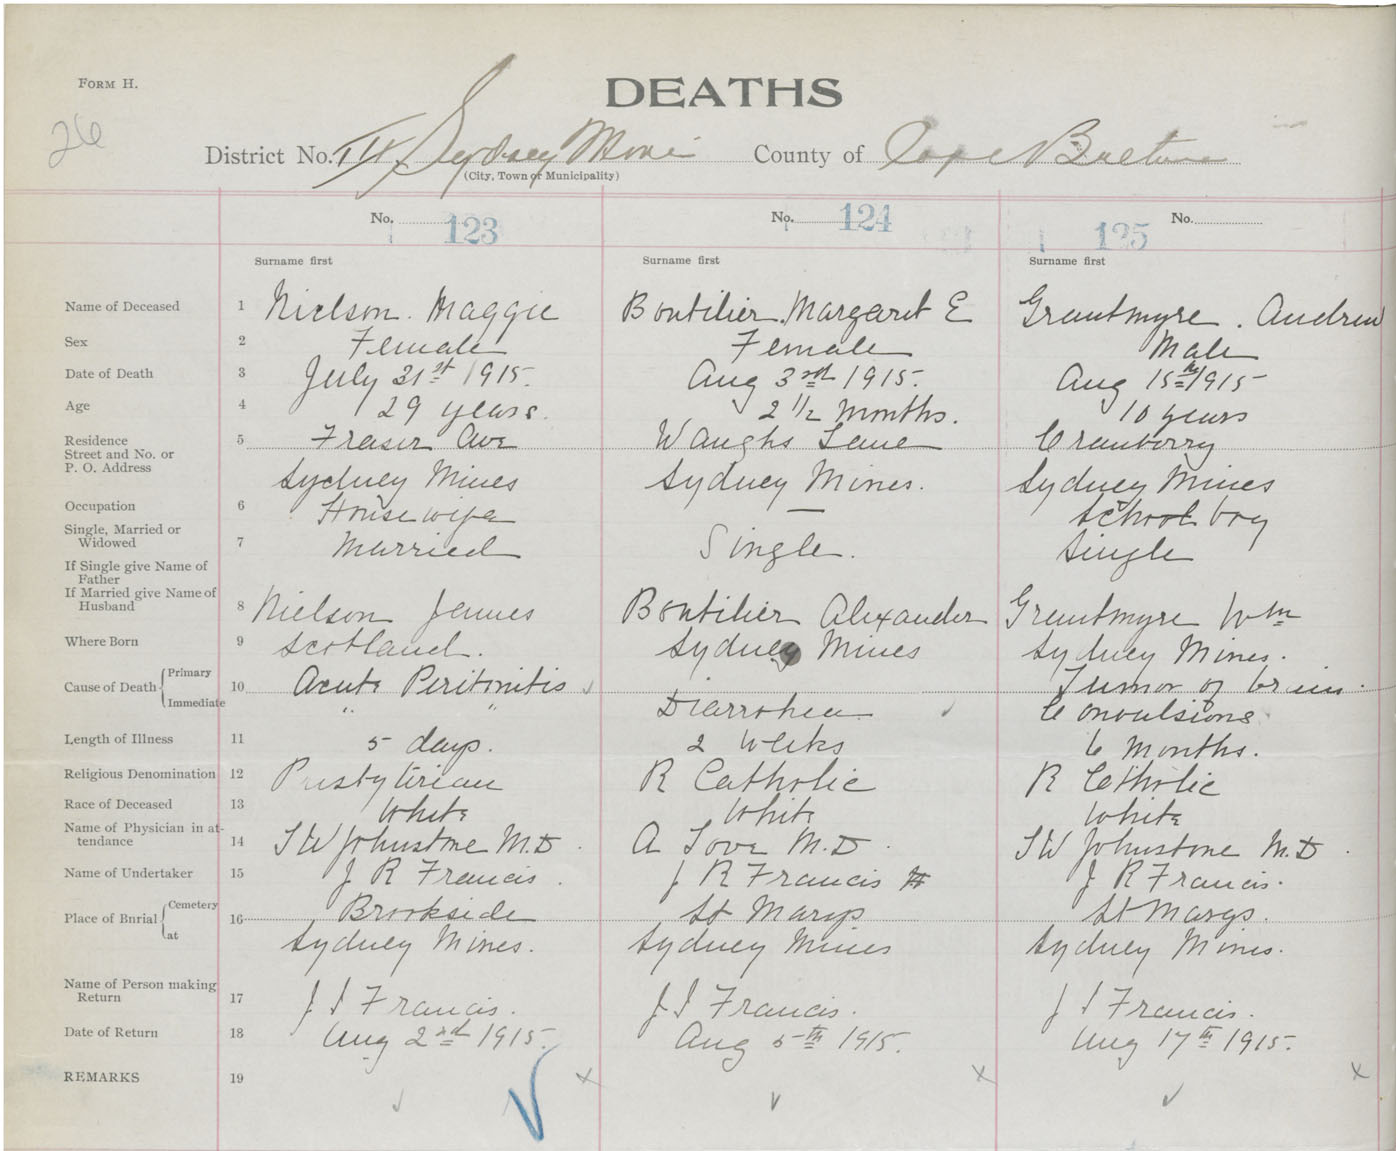 FORM H.
DEATHS
26
District No. Sydney Mines County of Cape Breton
(City, Town or Municipality)
No. 123 No. 124 No. 125
Surname first Surname first Surname first
Name of Deceased 1 Nielson. Maggie Boutilier. Margaret E Grantmyre. Andrew
Sex 2 Female Female Male
Date of Death 3 July 31st 1915. Aug 3rd 1915. Aug 15th 1915
Age 4 29 years. 2 1/2 Months. 10 years
Residence 5 Fraser Ave Waughs Lane Cranberry
Street and No. or
P. O. Address Sydney Mines Sydney Mines. Sydney Mines
Occupation 6 Housewife — School boy
Single, Married or
Widowed 7 Married Single. Single
If Single give Name of
Father
If Married give Name of
Husband 8 Nielson James Boutilier Alexander Grantmyre Wm
Where Born 9 Scotland. Sydney Mines Sydney Mines.
Cause of Death Primary 10 Acute Peritonitis Tumor of brain.
Immediate " " Diarrohea Convulsions.
Length of Illness 11 5 days. 2 Weeks 6 Months.
Religious Denomination 12 Presbyterian R Catholic R Catholic
Race of Deceased 13 White White White
Name of Physician in at-
tendance 14 T W Johnstone M.D. A Love M.D. T W Johnstone M.D.
Name of Undertaker 15 J R Francis. J R Francis J R Francis.
Place of Burial Cemetery 16 Brookside St Marys St Marys.
at Sydney Mines. Sydney Mines Sydney Mines.
Name of Person making
Return 17 J I Francis. J I Francis. J I Francis.
Date of Return 18 Aug 2nd 1915. Aug 5th 1915. Aug 17th 1915.
REMARKS 19